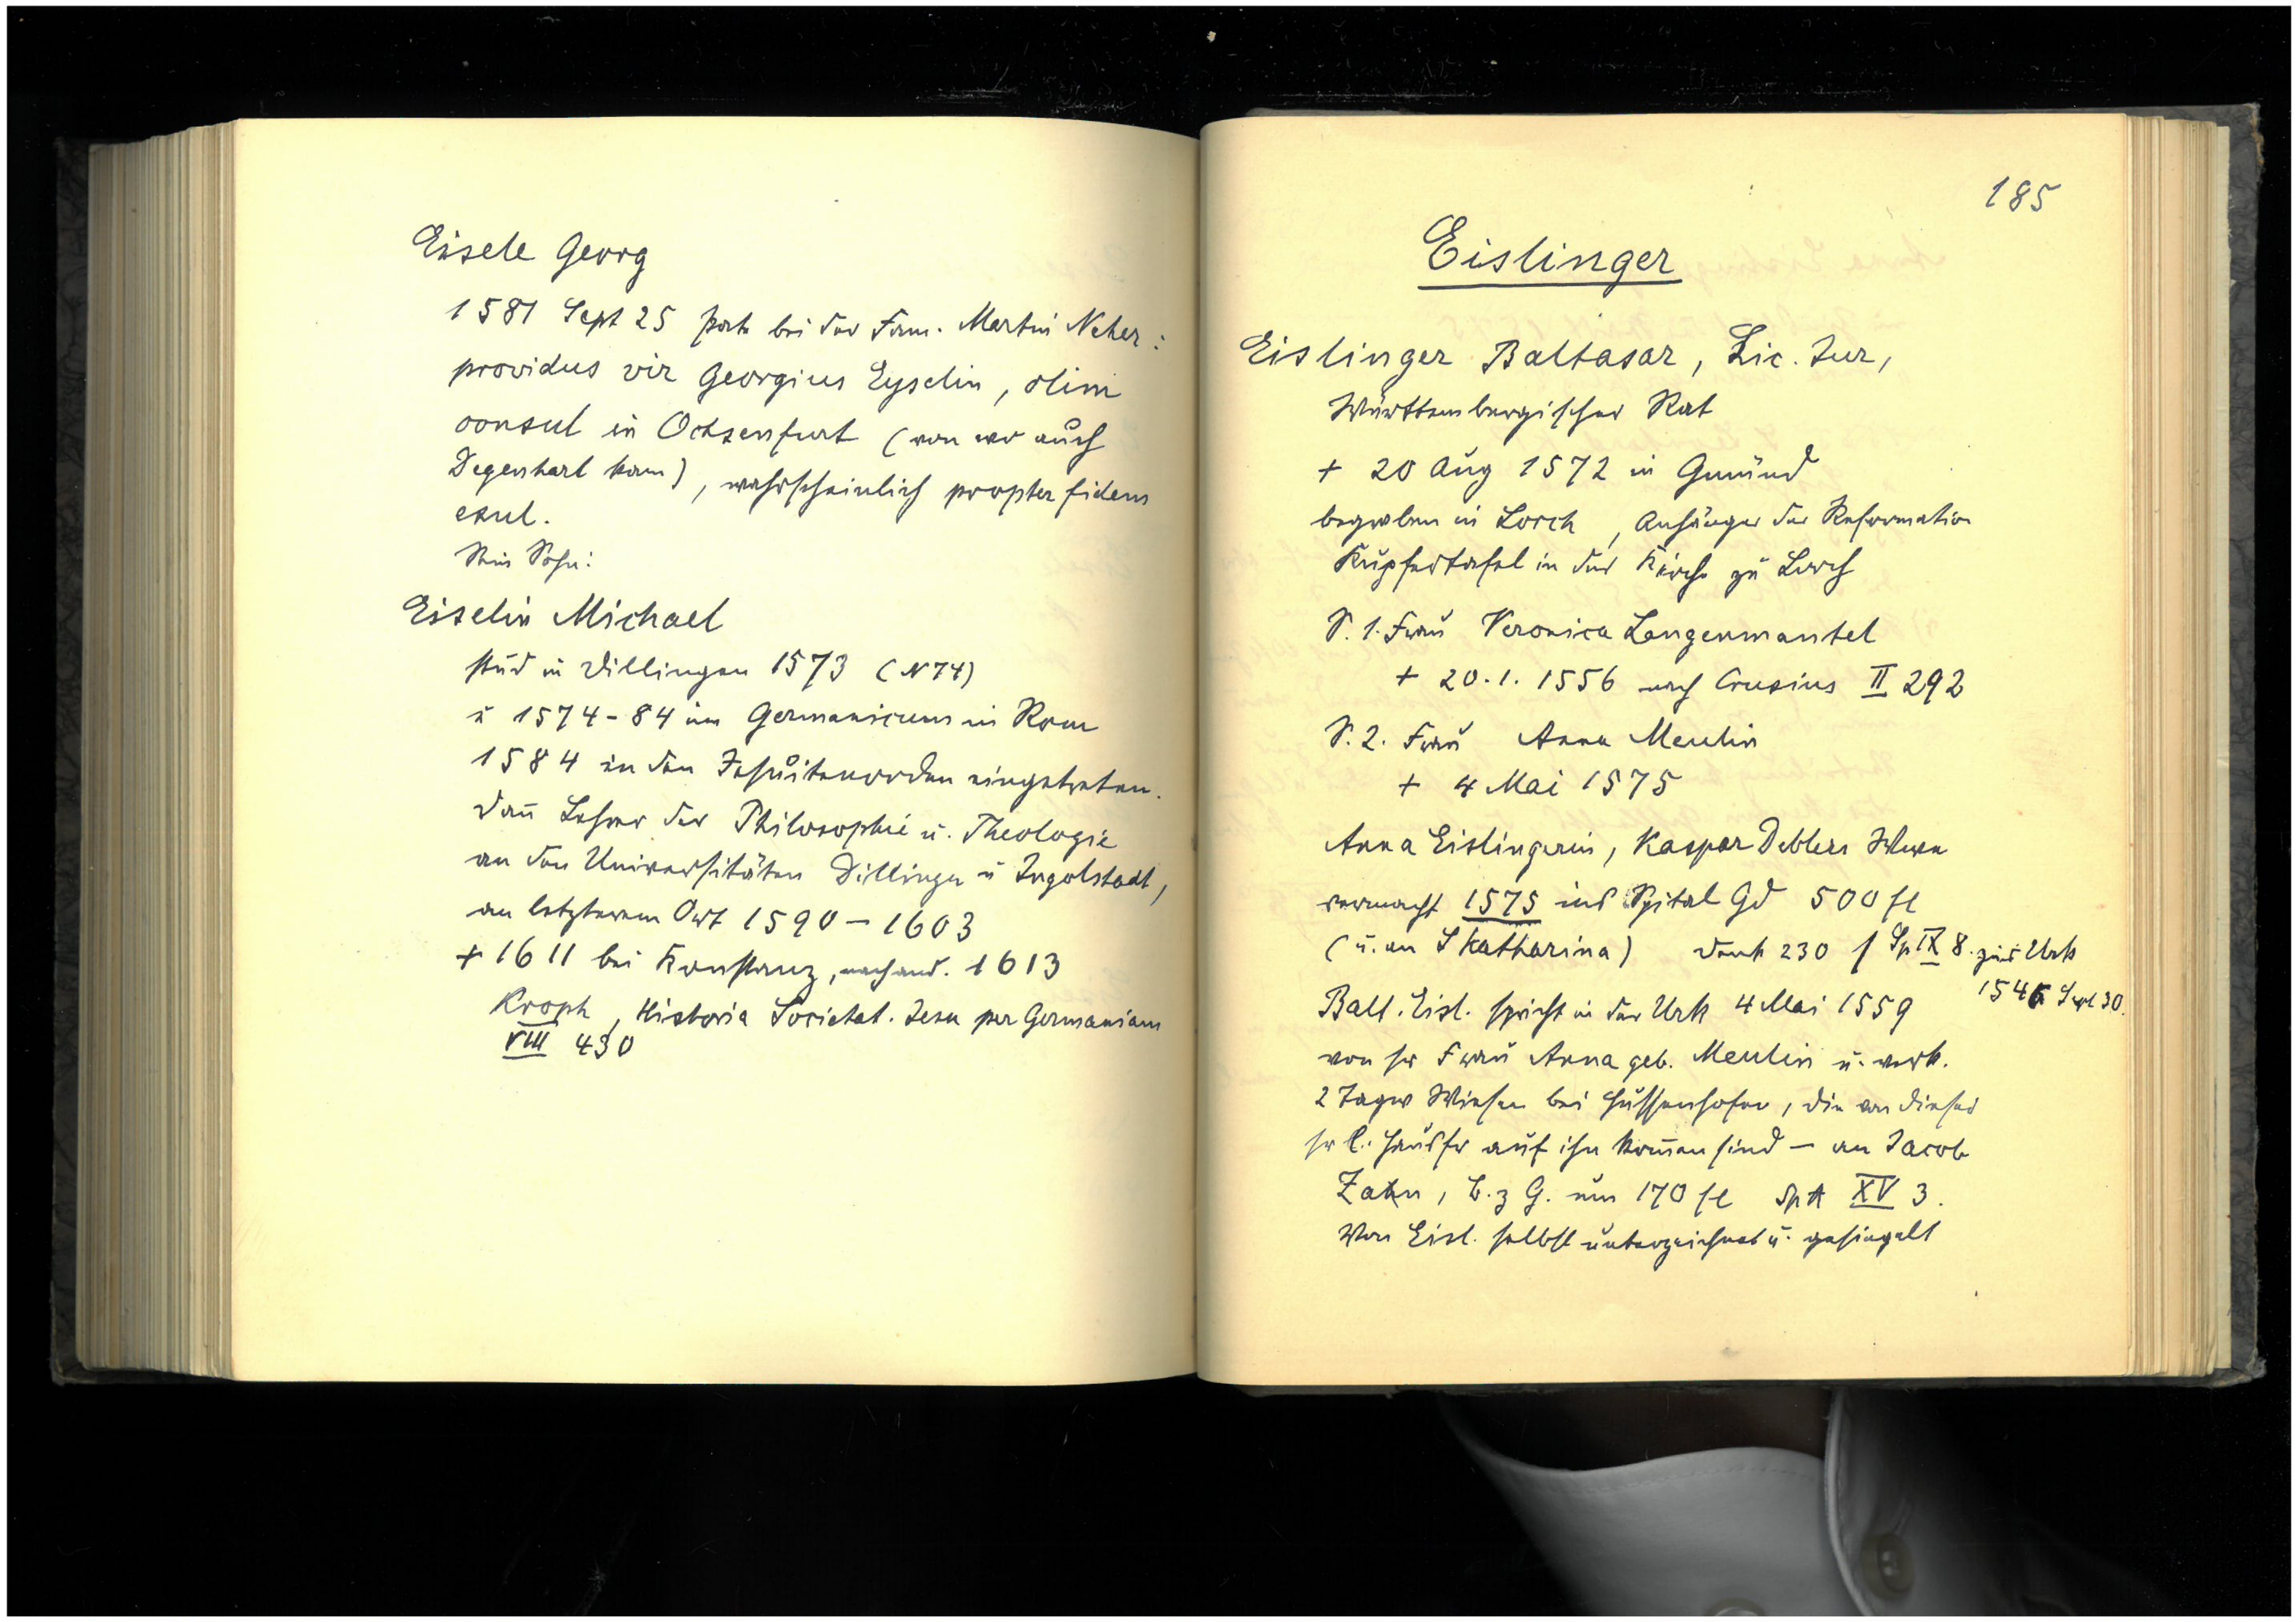 Eisele Georg
1581 Sept 25 Pate bei der Fam. Martin Neher:
providus vir Georgius Eyselin, olim
consul in Ochsenfurt (von wo auch
Degenhart kam), wahrscheinlich propter fidem
exul.
Sein Sohn:
Eiselin Michael
stud in Dillingen 1573 (N 74)
u 1574-84 im Germanicum in Rom
1584 in den Jesuitenorden eingetreten.
dañ Lehrer der Philosophie u. Theologie
an den Universitäten Dillingen u Ingolstadt,
an letzterem Ort 1590-1603
+ 1611 bei Konstanz, nach and. 1613
Kroph, Historia Societat. Jesu per Germaniam
VIII 430
185
Eislinger
Eislinger Baltasar, Lic. Jur,
Württembergischer Rat
+ 20 Aug 1572 in Gmünd
begraben in Lorch, Anhänger der Reformation
Kupfertafel in der Kirche zu Lorch
S. 1. Frau Veronica Langenmantel
+ 20.1.1556 nach Crusius II 292
S. 2. Frau Anna Meulin
+ 4 Mai 1575
Anna Eislingerin, Kaspar Deblers Witwe
vermacht 1575 ins Spital Gd 500 fl
(u. an S Katharina) Denk 230 f Sp IX 8. zur Urk
1546 Sept 30.
Balt. Eisl. spricht in der Urk 4 Mai 1559
von sr Frau Anna geb. Meulin u. verk.
2 Tagw Wiesen bei Hussenhofen, die von dieser
sr l. Hausfr auf ihn kom̄en sind - an Jacob
Zahn, B. z G. um 170 fl SpA XV 3.
Von Eisl. selbst unterzeichnet u. gesiegelt